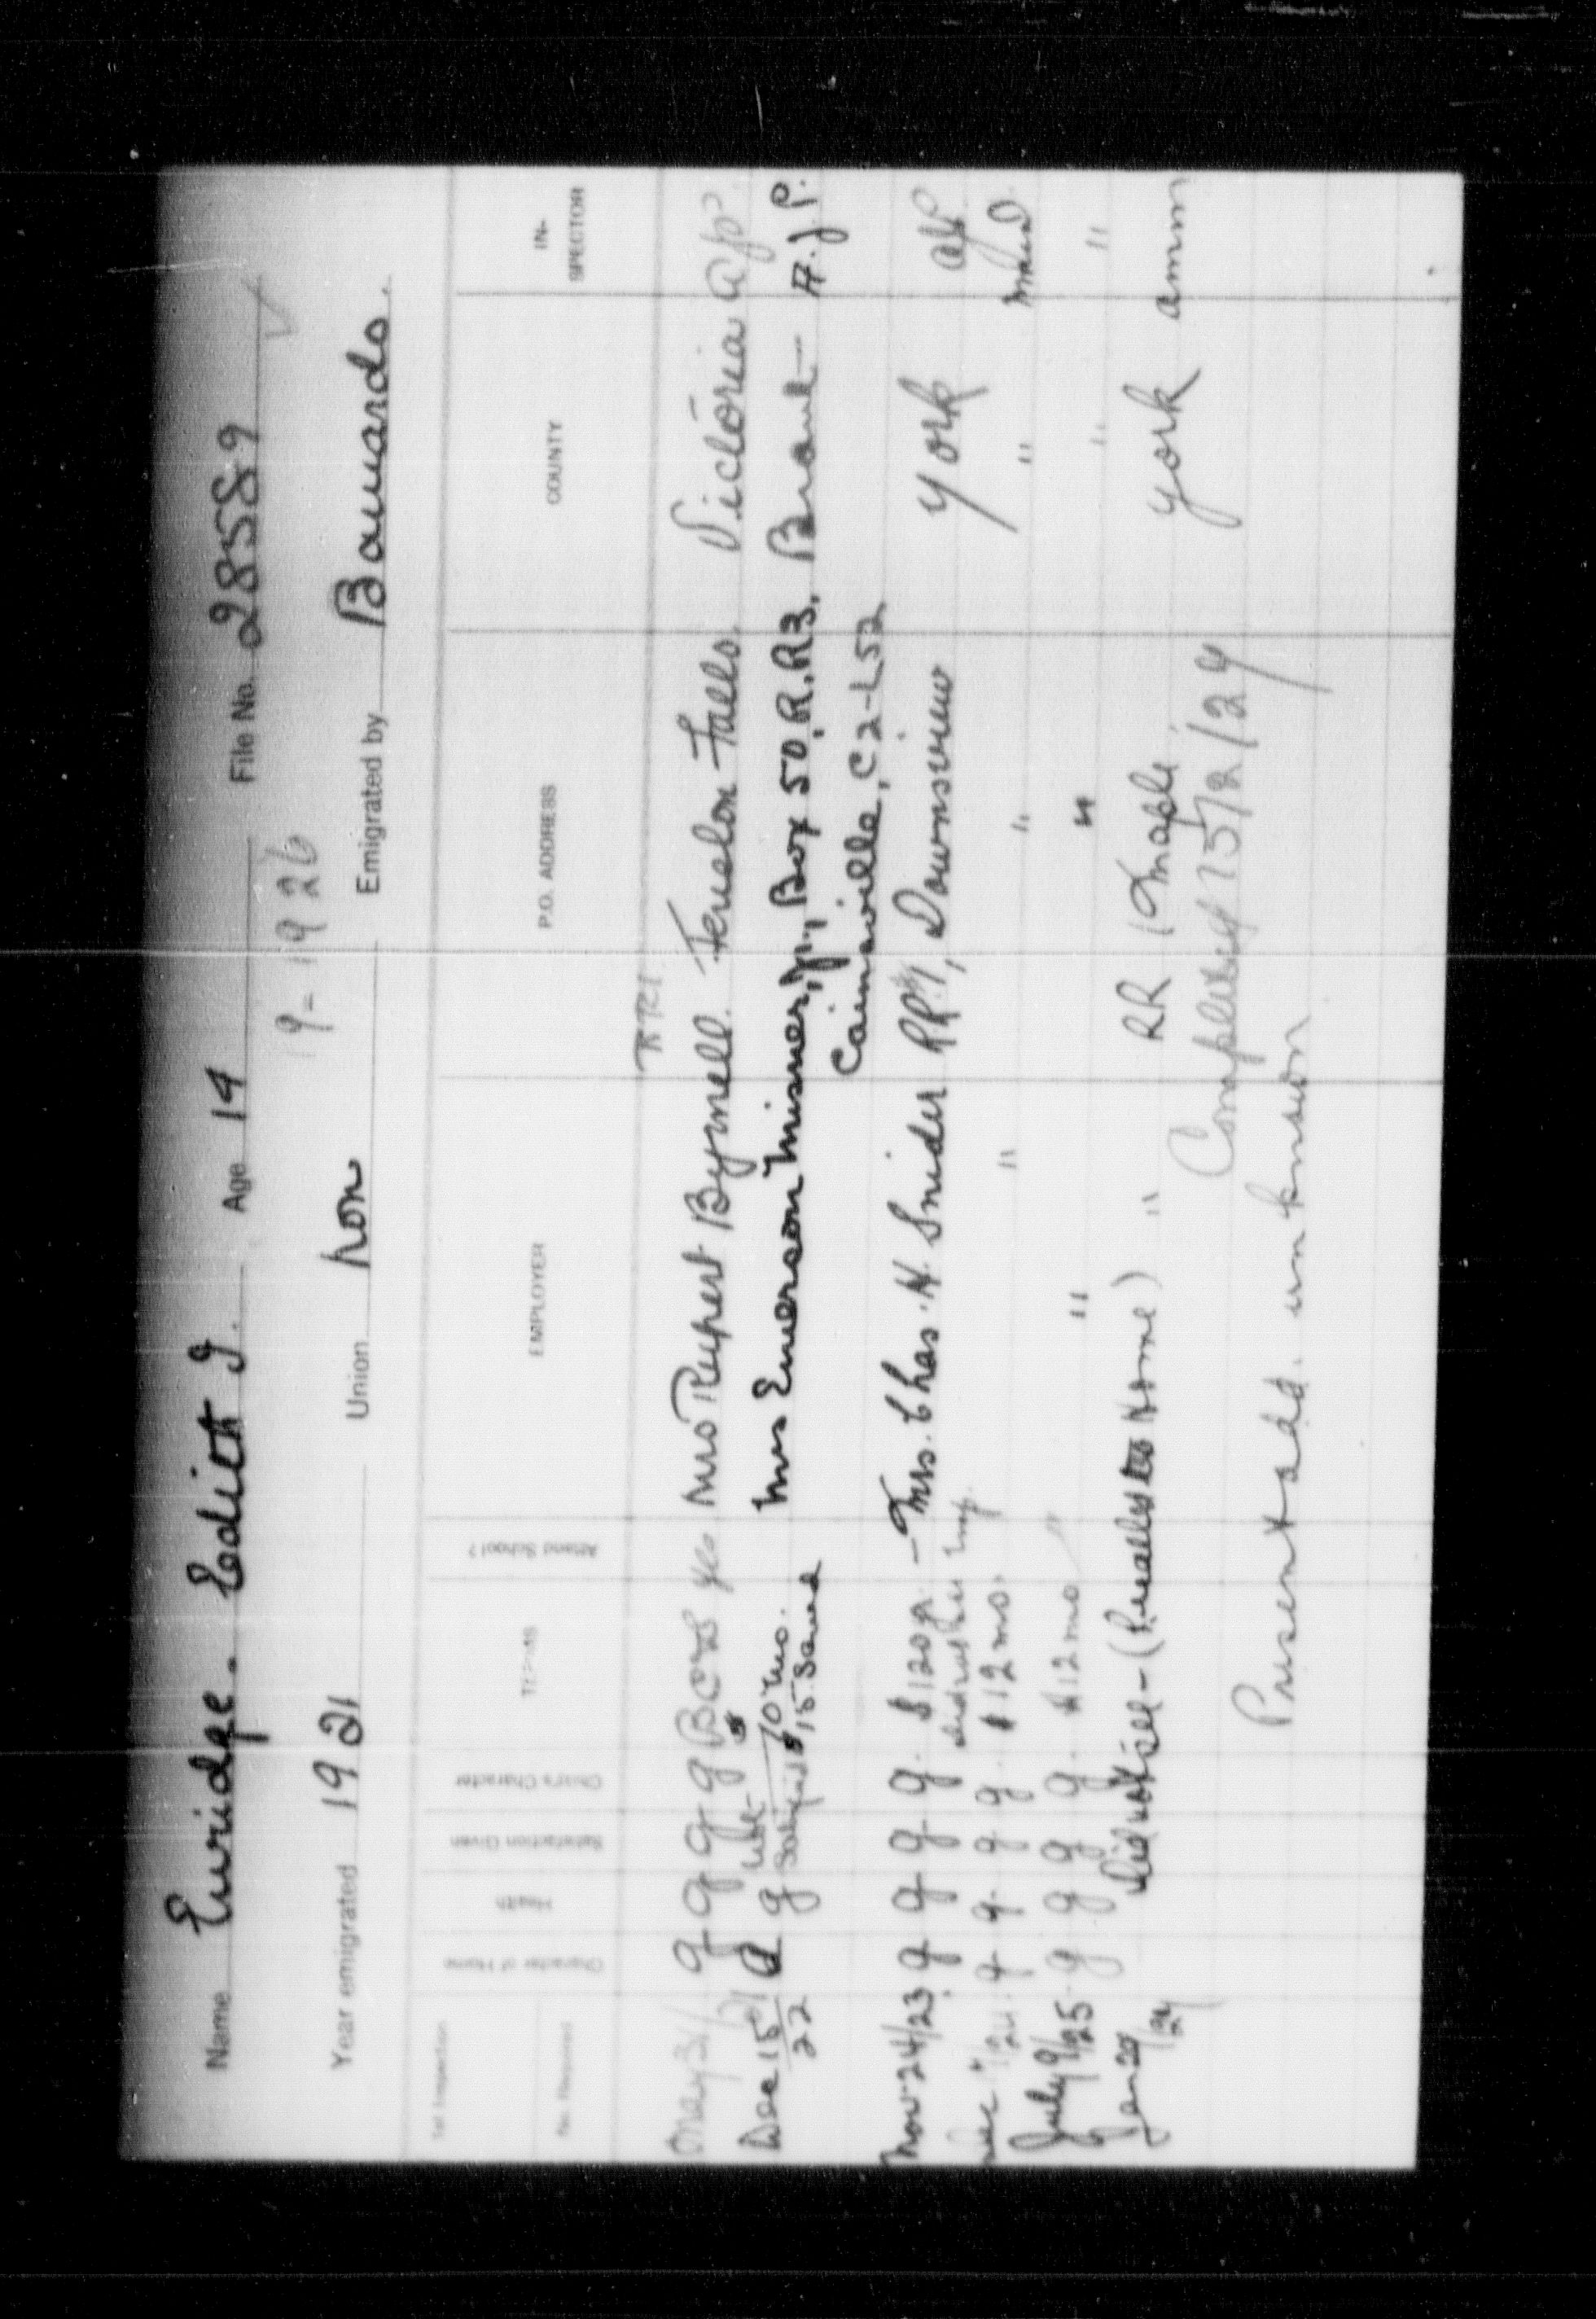 Name Enridge. Edith J. Age 14 File No. 28589
9- 1926
Year emigrated 1921 Union non Emigrated by Barnardo.
1st Inspection
No. Required
Character of Home
Health
Satisfaction Given
Child's Character
TERMS
Attend School?
EMPLOYER
P.O. ADDRESS
COUNTY
IN-
SPECTOR
RR1
May 31/21 g g g g yes Mrs Rupert Bynnell Fenelon Falls. Victoria
Dec 15 g 10 mo. Mrs Emerson Misner, Jr., Box 50, R.R3. Brant H.J.P.
22 15. Saved Cainsville, C2-L52
Nov 24/23 g g g g. $120 yr. - Mrs. Chas. H. Snider RR#1, Downsview York
g g g g. $12 mo. " " "
July 9/25 g g g g. $12 mo " " " " "
Jan 20 Did not see - (Recalled to Home) " RR 1 Maple York amm
Completed /2/24
Present add. unknown